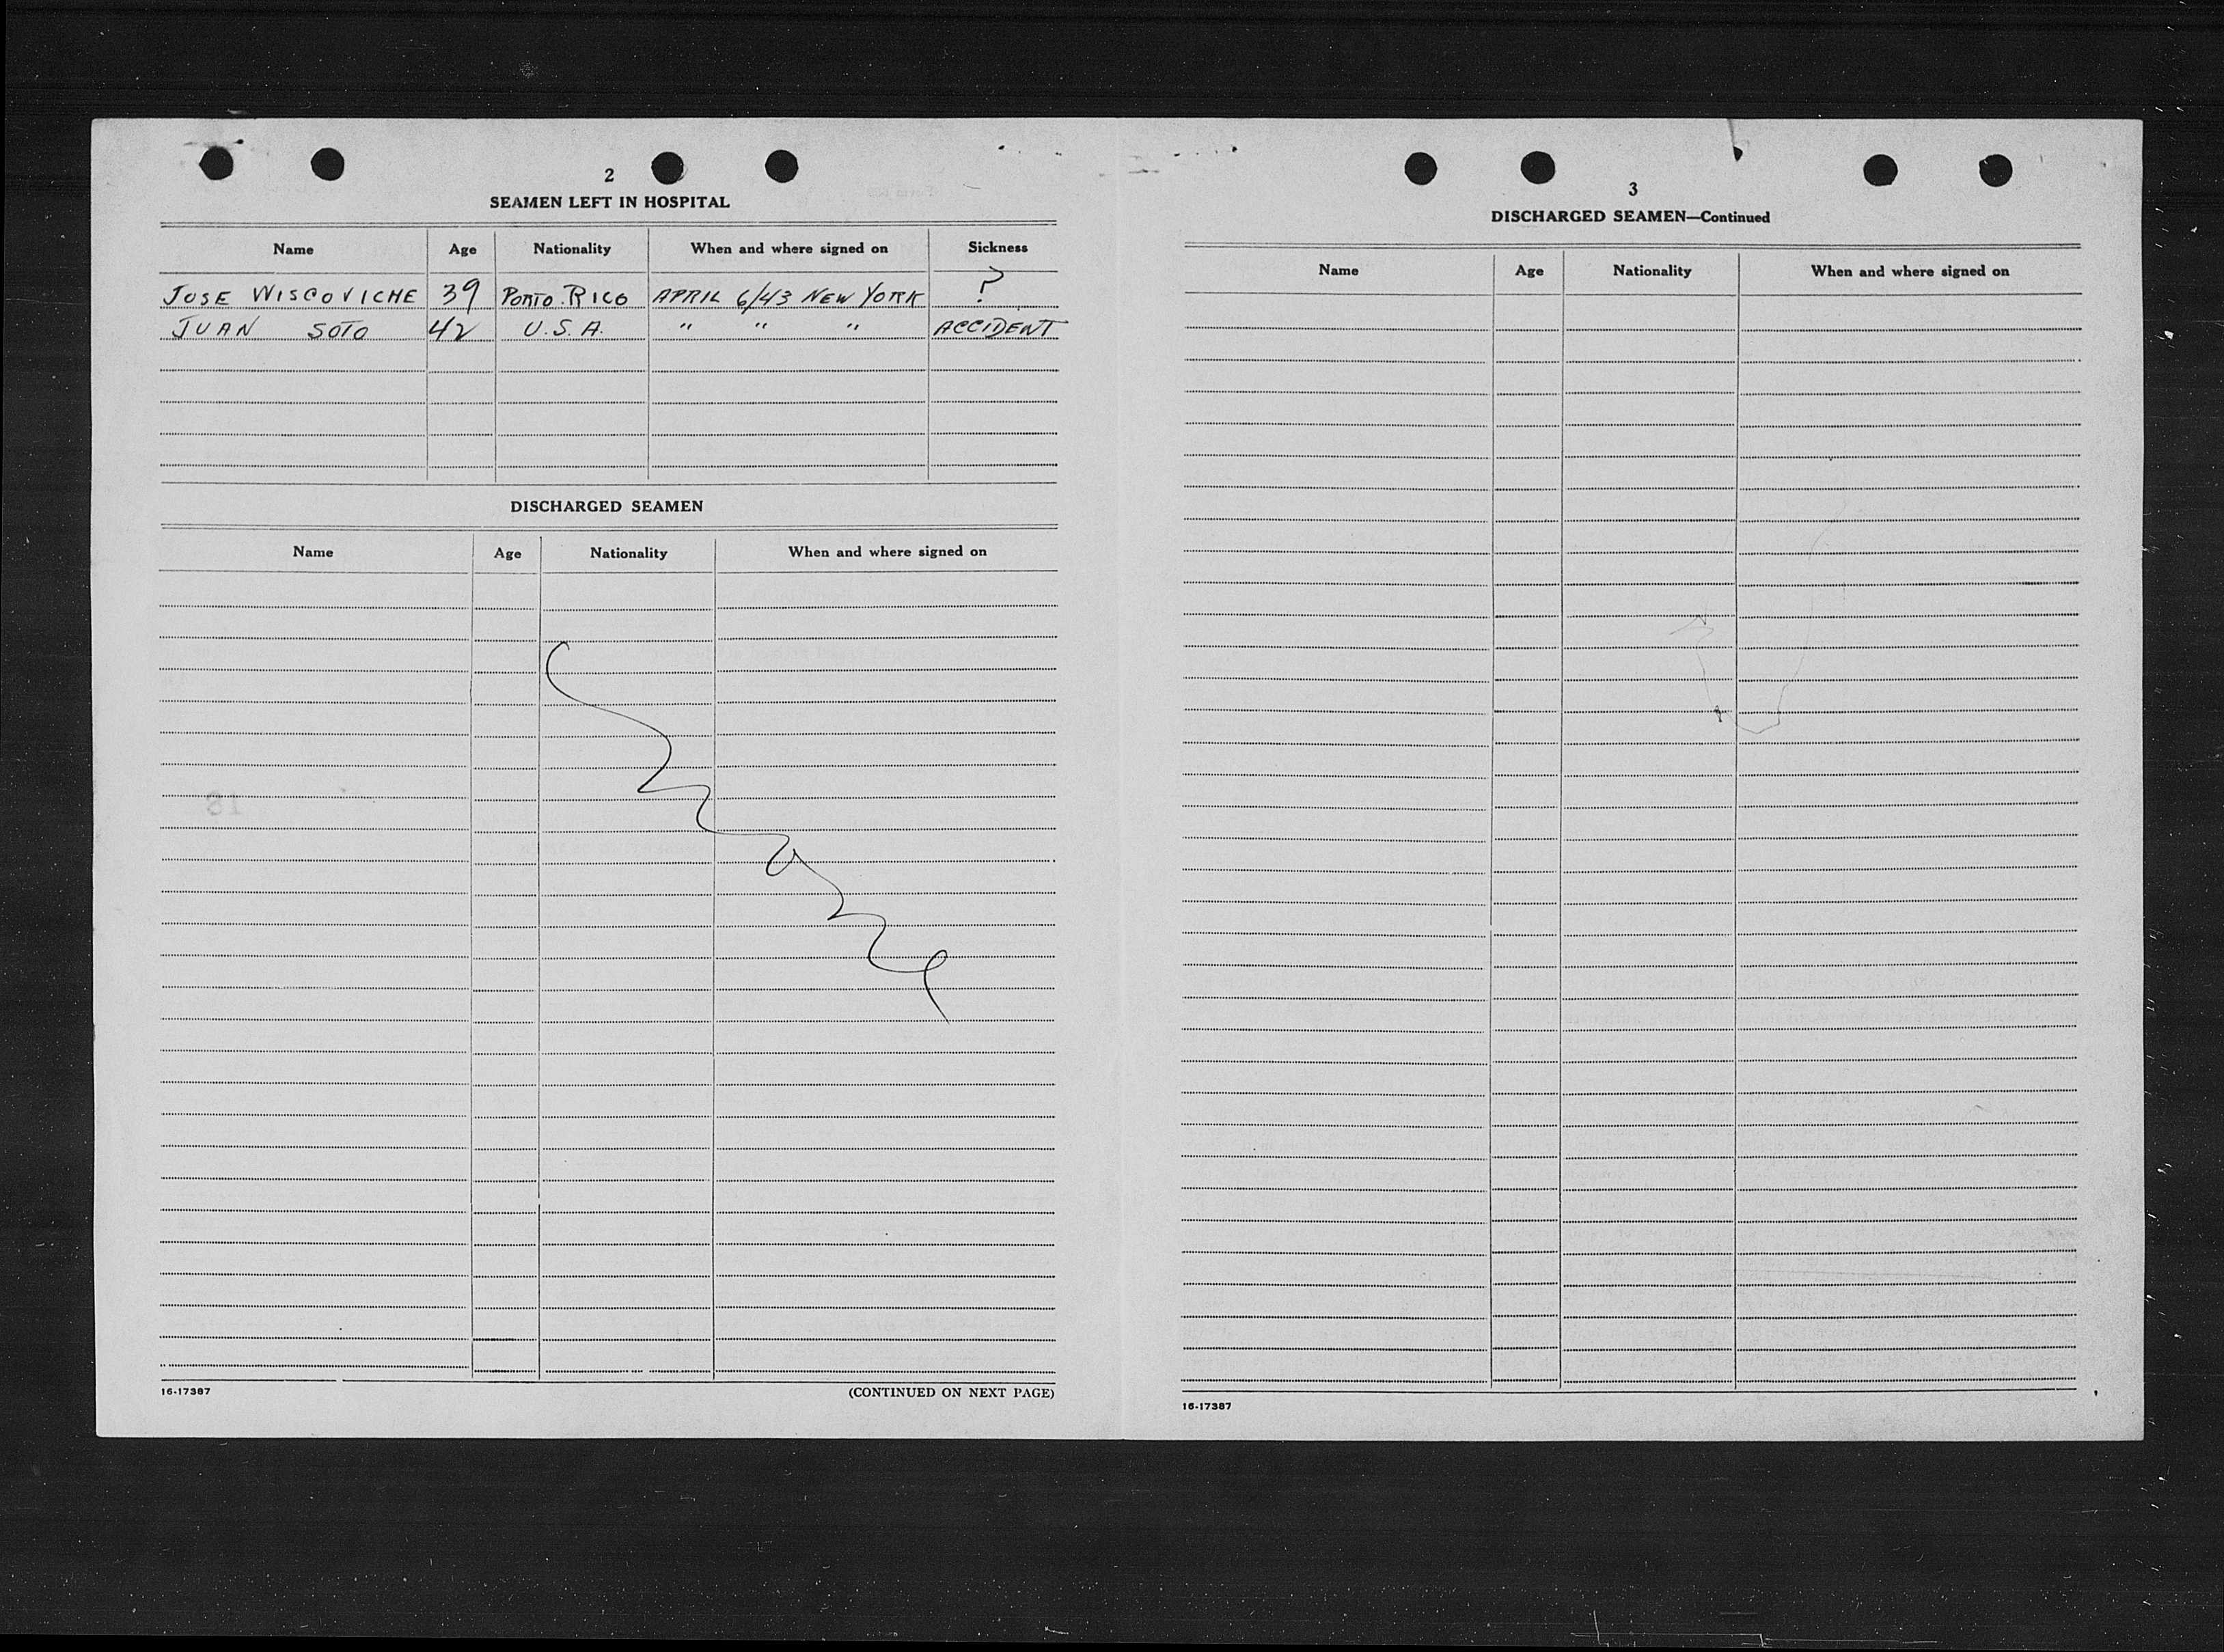 2
SEAMEN LEFT IN HOSPITAL
Name Age Nationality When and where signed on Sickness
JOSE WISCOVICHE 39 PORTO RICO APRIL 6/43 NEW YORK ?
JUAN SOTO 42 U.S.A. " " " ACCIDENT
DISCHARGED SEAMEN
Name Age Nationality When and where signed on
16-17387
(CONTINUED ON NEXT PAGE)
3
DISCHARGED SEAMEN—Continued
Name Age Nationality When and where signed on
16-17387